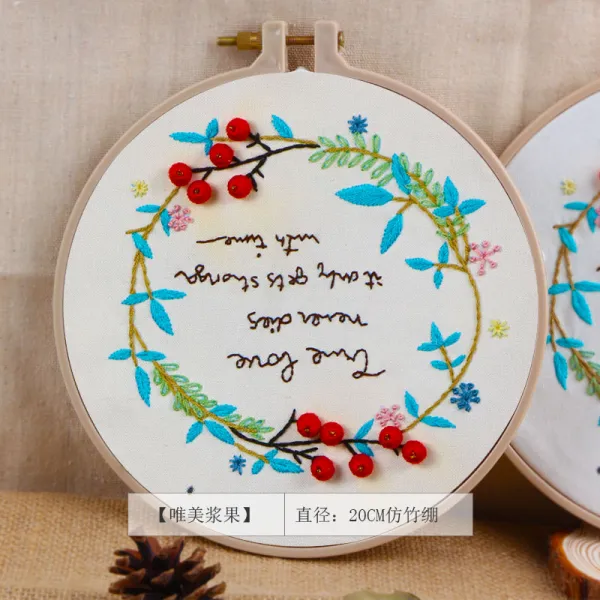 True love
never dies
it only gets stronger
with time
【唯美浆果】
直径：20CM仿竹绷